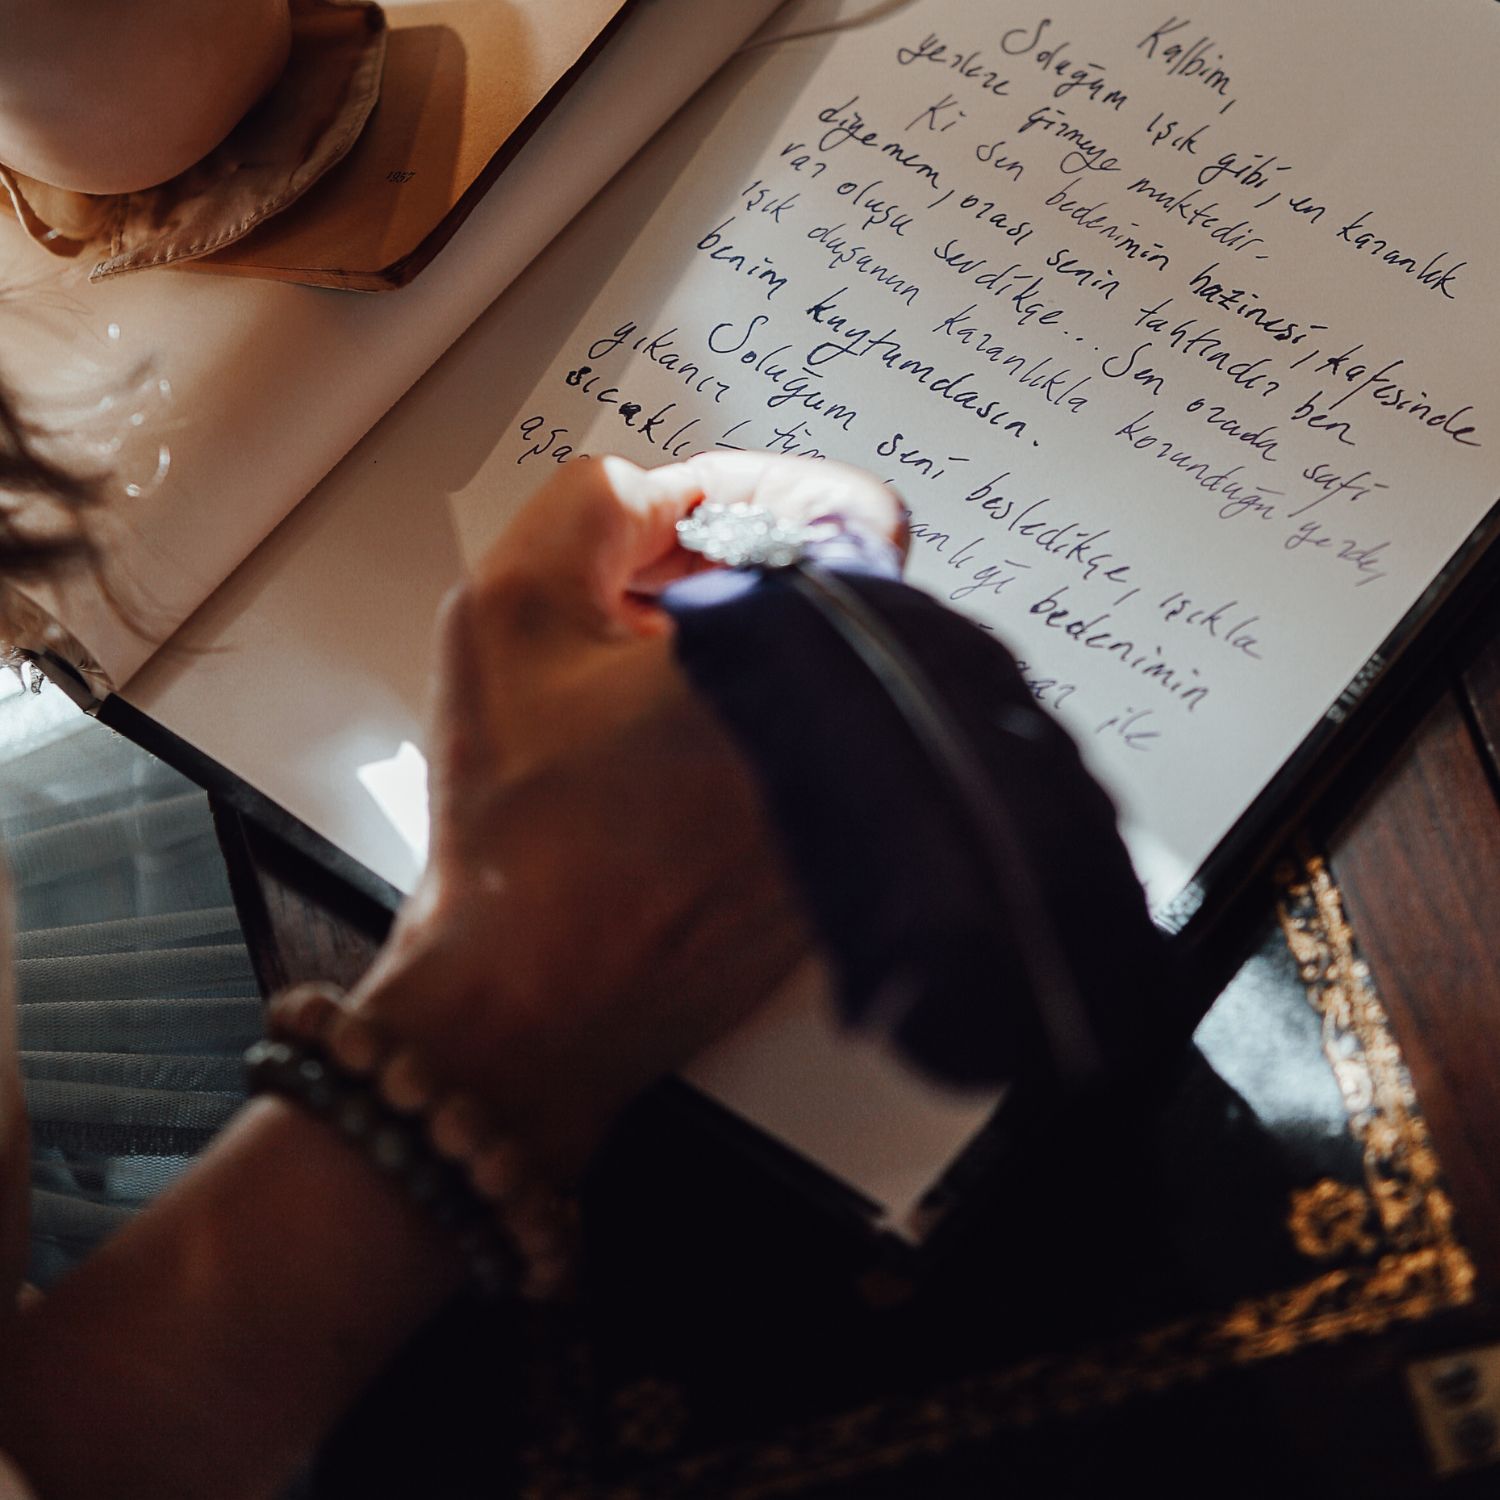 1957
Kalbim,
Soluğum ışık gibi, en karanlık
yerlere girmeye muktedir.
Ki sen bedenimin hazinesi, kafesinde
diyemem, orası senin tahtındır ben
var oluşu sevdikçe... Sen orada safi
ışık duşunun karanlıkla korunduğu yerde,
benim kuytumdasın.
Soluğum seni besledikçe, ışıkla
yıkanır tüm bedenimin
ile